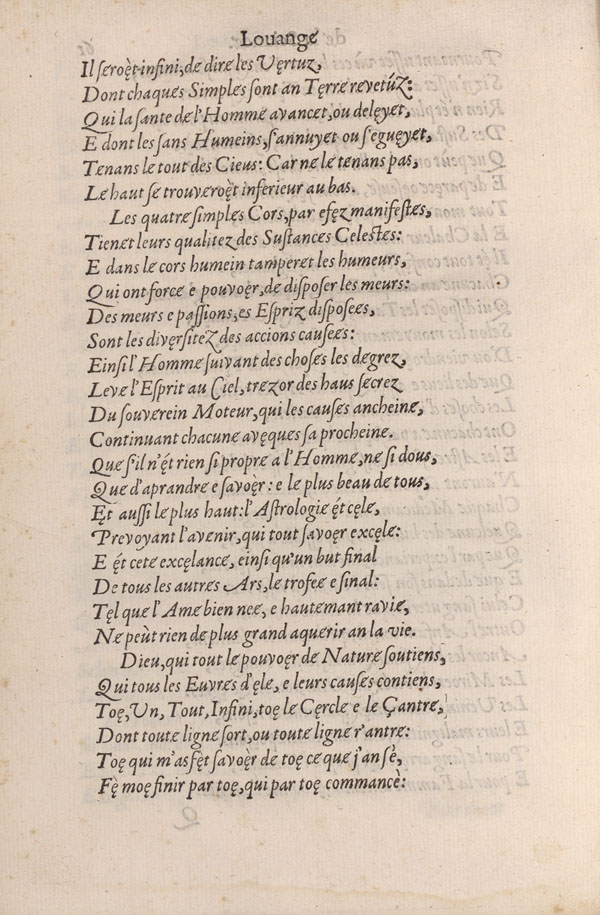 Louange
Il seroę̀t infini, de dire les Vęrtuz,
Dont chaques Simples sont an Tęrre revetúz:
Qui la sante de l'Homme avancet, ou delęyet,
E dont les sans Humeins, s'annuyet ou s'eguęyet,
Tenans le tout des Cieus: Car ne le tenans pas,
Le haut se trouveroę̀t inferieur au bas.
Les quatre simples Cors, par efęz manifestes,
Tienet leurs qualitez des Sustances Celestes:
E dans le cors humein tamperet les humeurs,
Qui ont force e pouvoęr, de disposer les meurs:
Des meurs e passions, es Espriz disposees,
Sont les divęrsitez des accions causees:
Einsi l'Homme suivant des choses les degrez,
Leve l'Esprit au Ciel, trezor des haus secrez
Du souverein Moteur, qui les causes ancheine,
Continuant chacune avęques sa procheine.
Que s'il n'ę́t rien si propre a l'Homme, ne si dous,
Que d'aprandre e savoęr: e le plus beau de tous,
Et aussi le plus haut: l'Astrologie ę́t cęle,
Prevoyant l'avenir, qui tout savoęr excęle:
E ę́t cete excęlance, einsi qu'un but final
De tous les autres Ars, le trofee e sinal:
Tęl que l'Ame bien nee, e hautemant ravie,
Ne peùt rien de plus grand aquerir an la vie.
Dieu, qui tout le pouvoęr de Nature soutiens,
Qui tous les Euvres d'ęle, e leurs causes contiens,
Toę, Un, Tout, Infini, toę le Cęrcle e le Çantre,
Dont toute ligne sort, ou toute ligne r'antre:
Toę qui m'as fęt savoęr de toę ce que j'an sè,
Fę moę finir par toę, qui par toę commancè:
Q